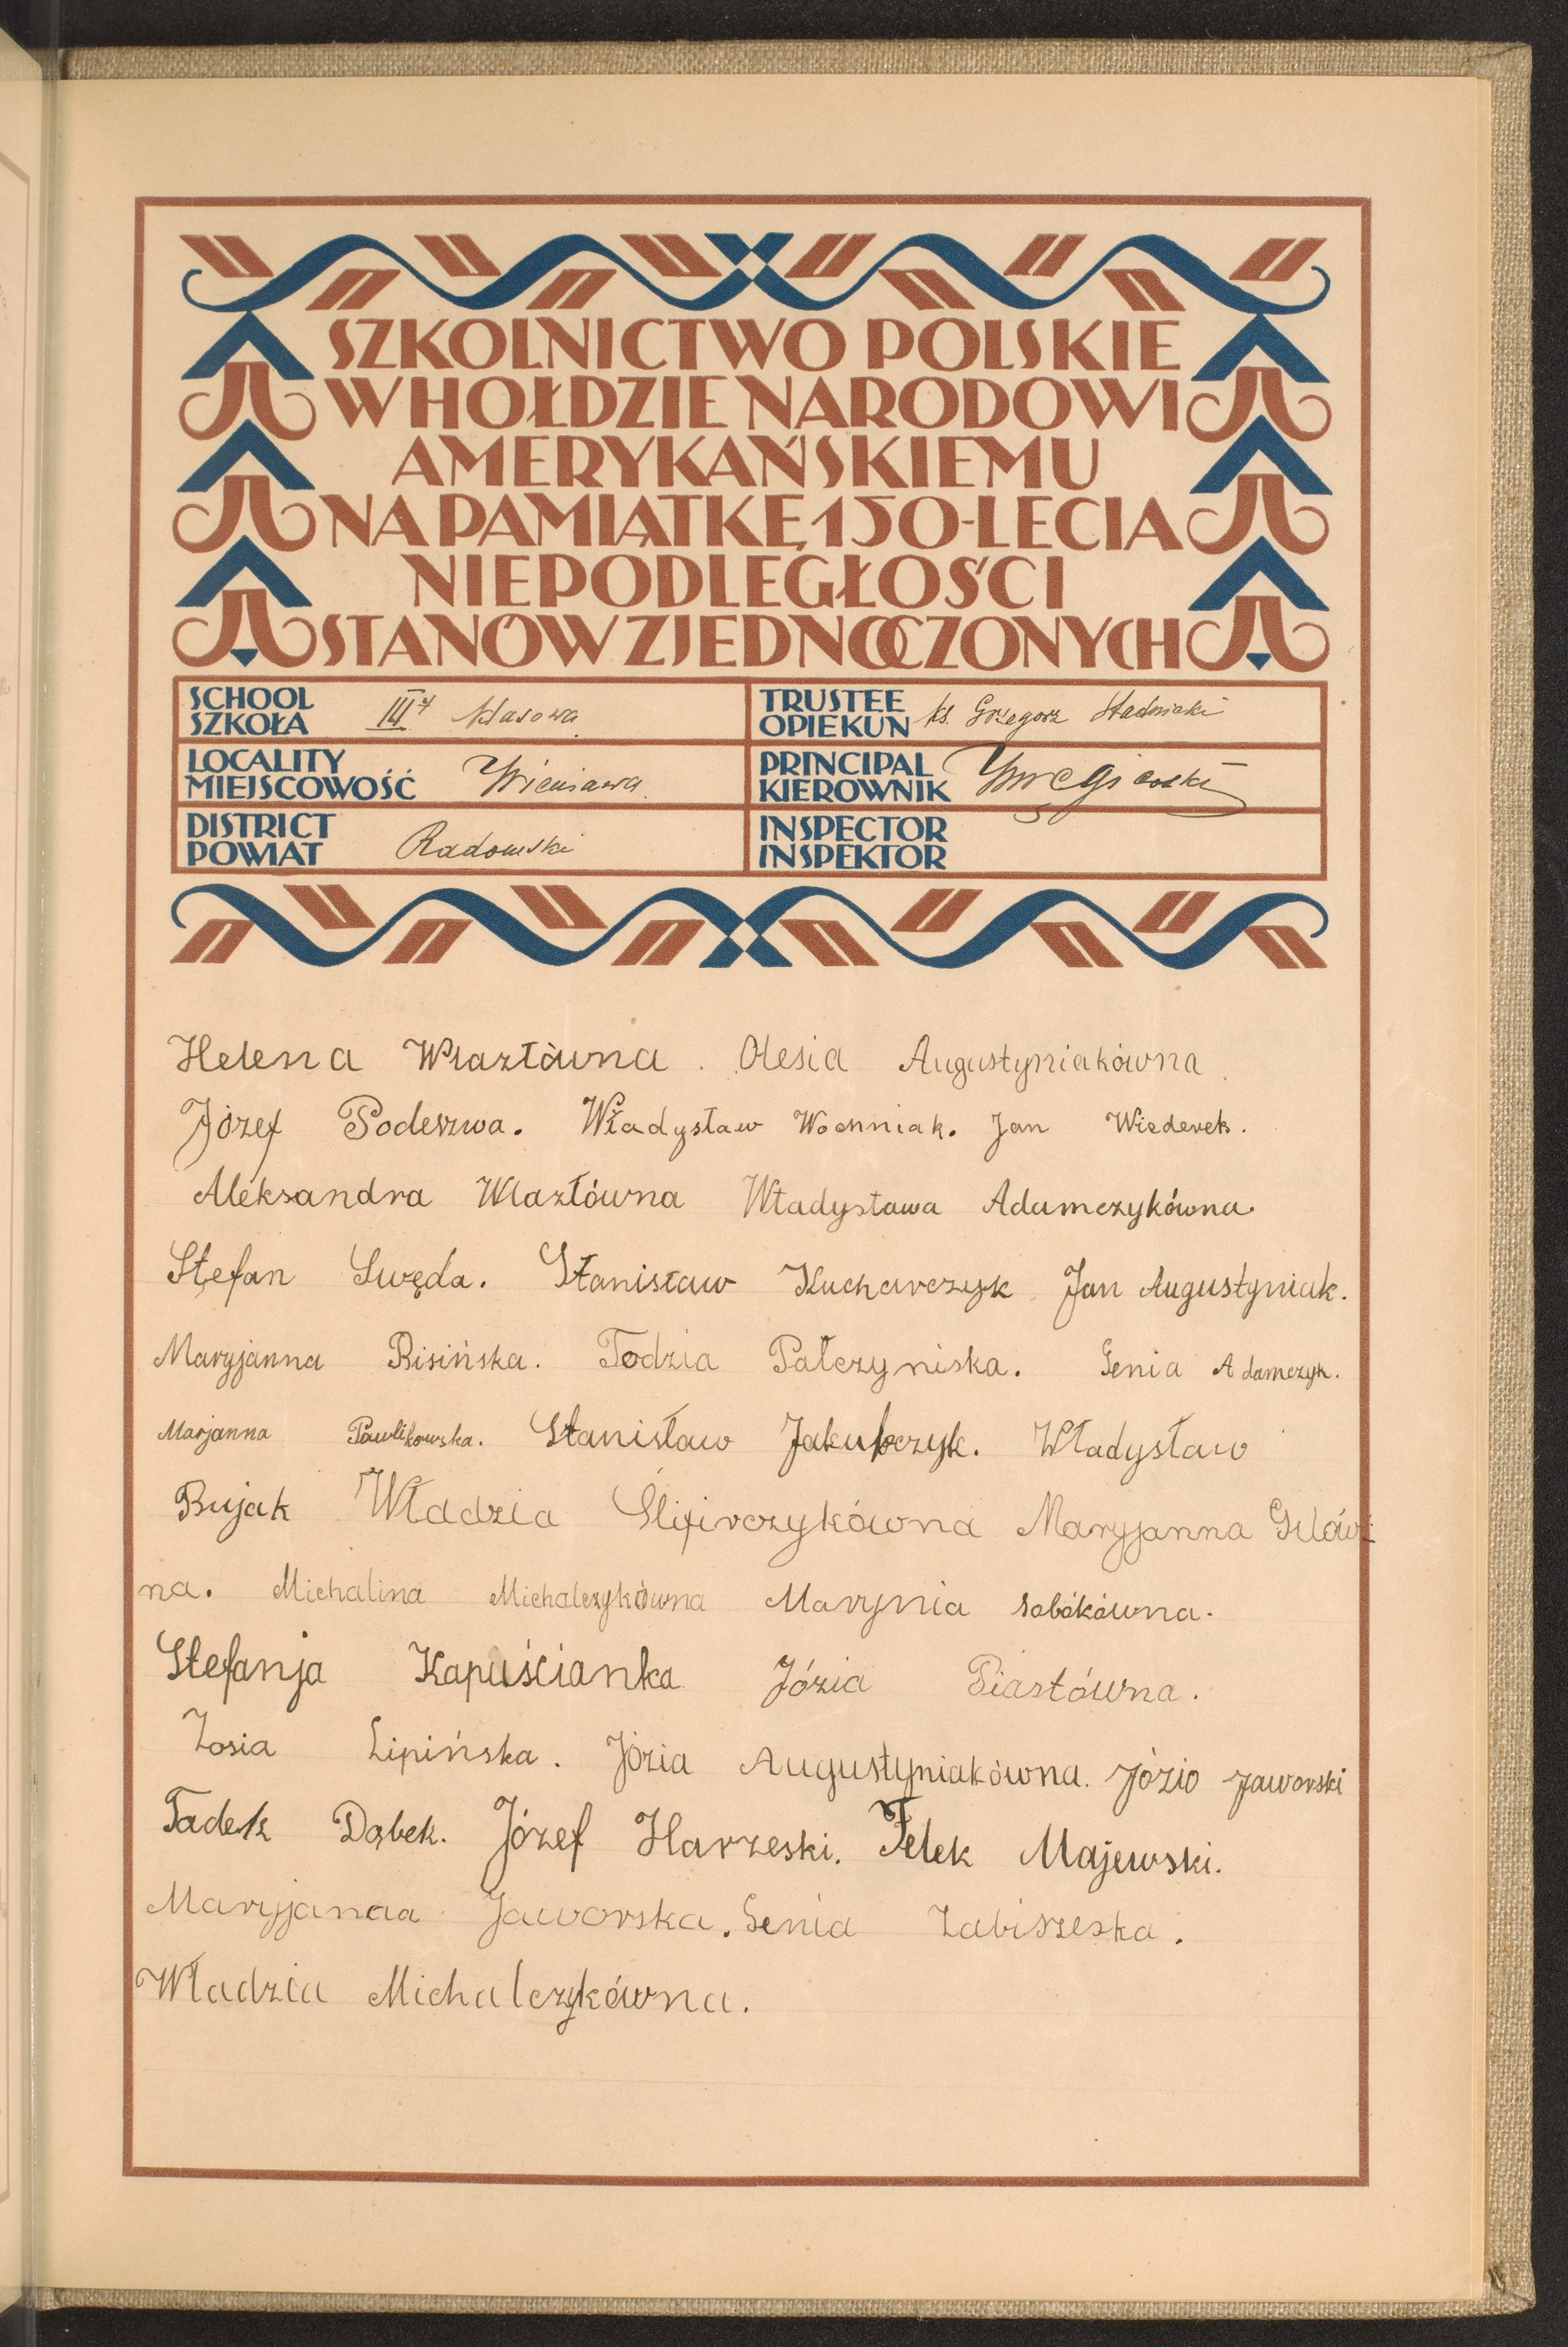 SZKOLNICTWO POLSKIE
W HOŁDZIE NARODOWI
AMERYKAŃSKIEMU
NA PAMIĄTKĘ 150-LECIA
NIEPODLEGŁOŚCI
STANÓW ZJEDNOCZONYCH
SCHOOL
SZKOŁA III klasowa
TRUSTEE
OPIEKUN ks. Grzegorz Stadnicki
LOCALITY
MIEJSCOWOŚĆ Wieniawa
PRINCIPAL
KIEROWNIK
DISTRICT
POWIAT Radomski
INSPECTOR
INSPEKTOR
Helena Wlazłówna. Olesia Augustyniakówna
Józef Podeszwa. Władysław Wochniak. Jan Wiederek.
Aleksandra Wlazłówna Władysława Adamczykówna.
Stefan Swęda. Stanisław Kucharczyk Jan Augustyniak.
Maryjanna Bisińska. Todzia Pałczyniska. Genia Adamczyk.
Marjanna Pawlikowska. Stanisław Jakubczyk. Władysław
Bujak Władzia Maryjanna
na. Michalina Michalczykówna Marynia Sobókówna.
Stefanja Kapuścianka Józia Piastówna.
Zosia Lipińska. Józia Augustyniakówna. Józio Jaworski
Tadek Dąbek. Józef Harzeski. Felek Majewski.
Maryjanna Jaworska. Genia
Władzia Michalczykówna.